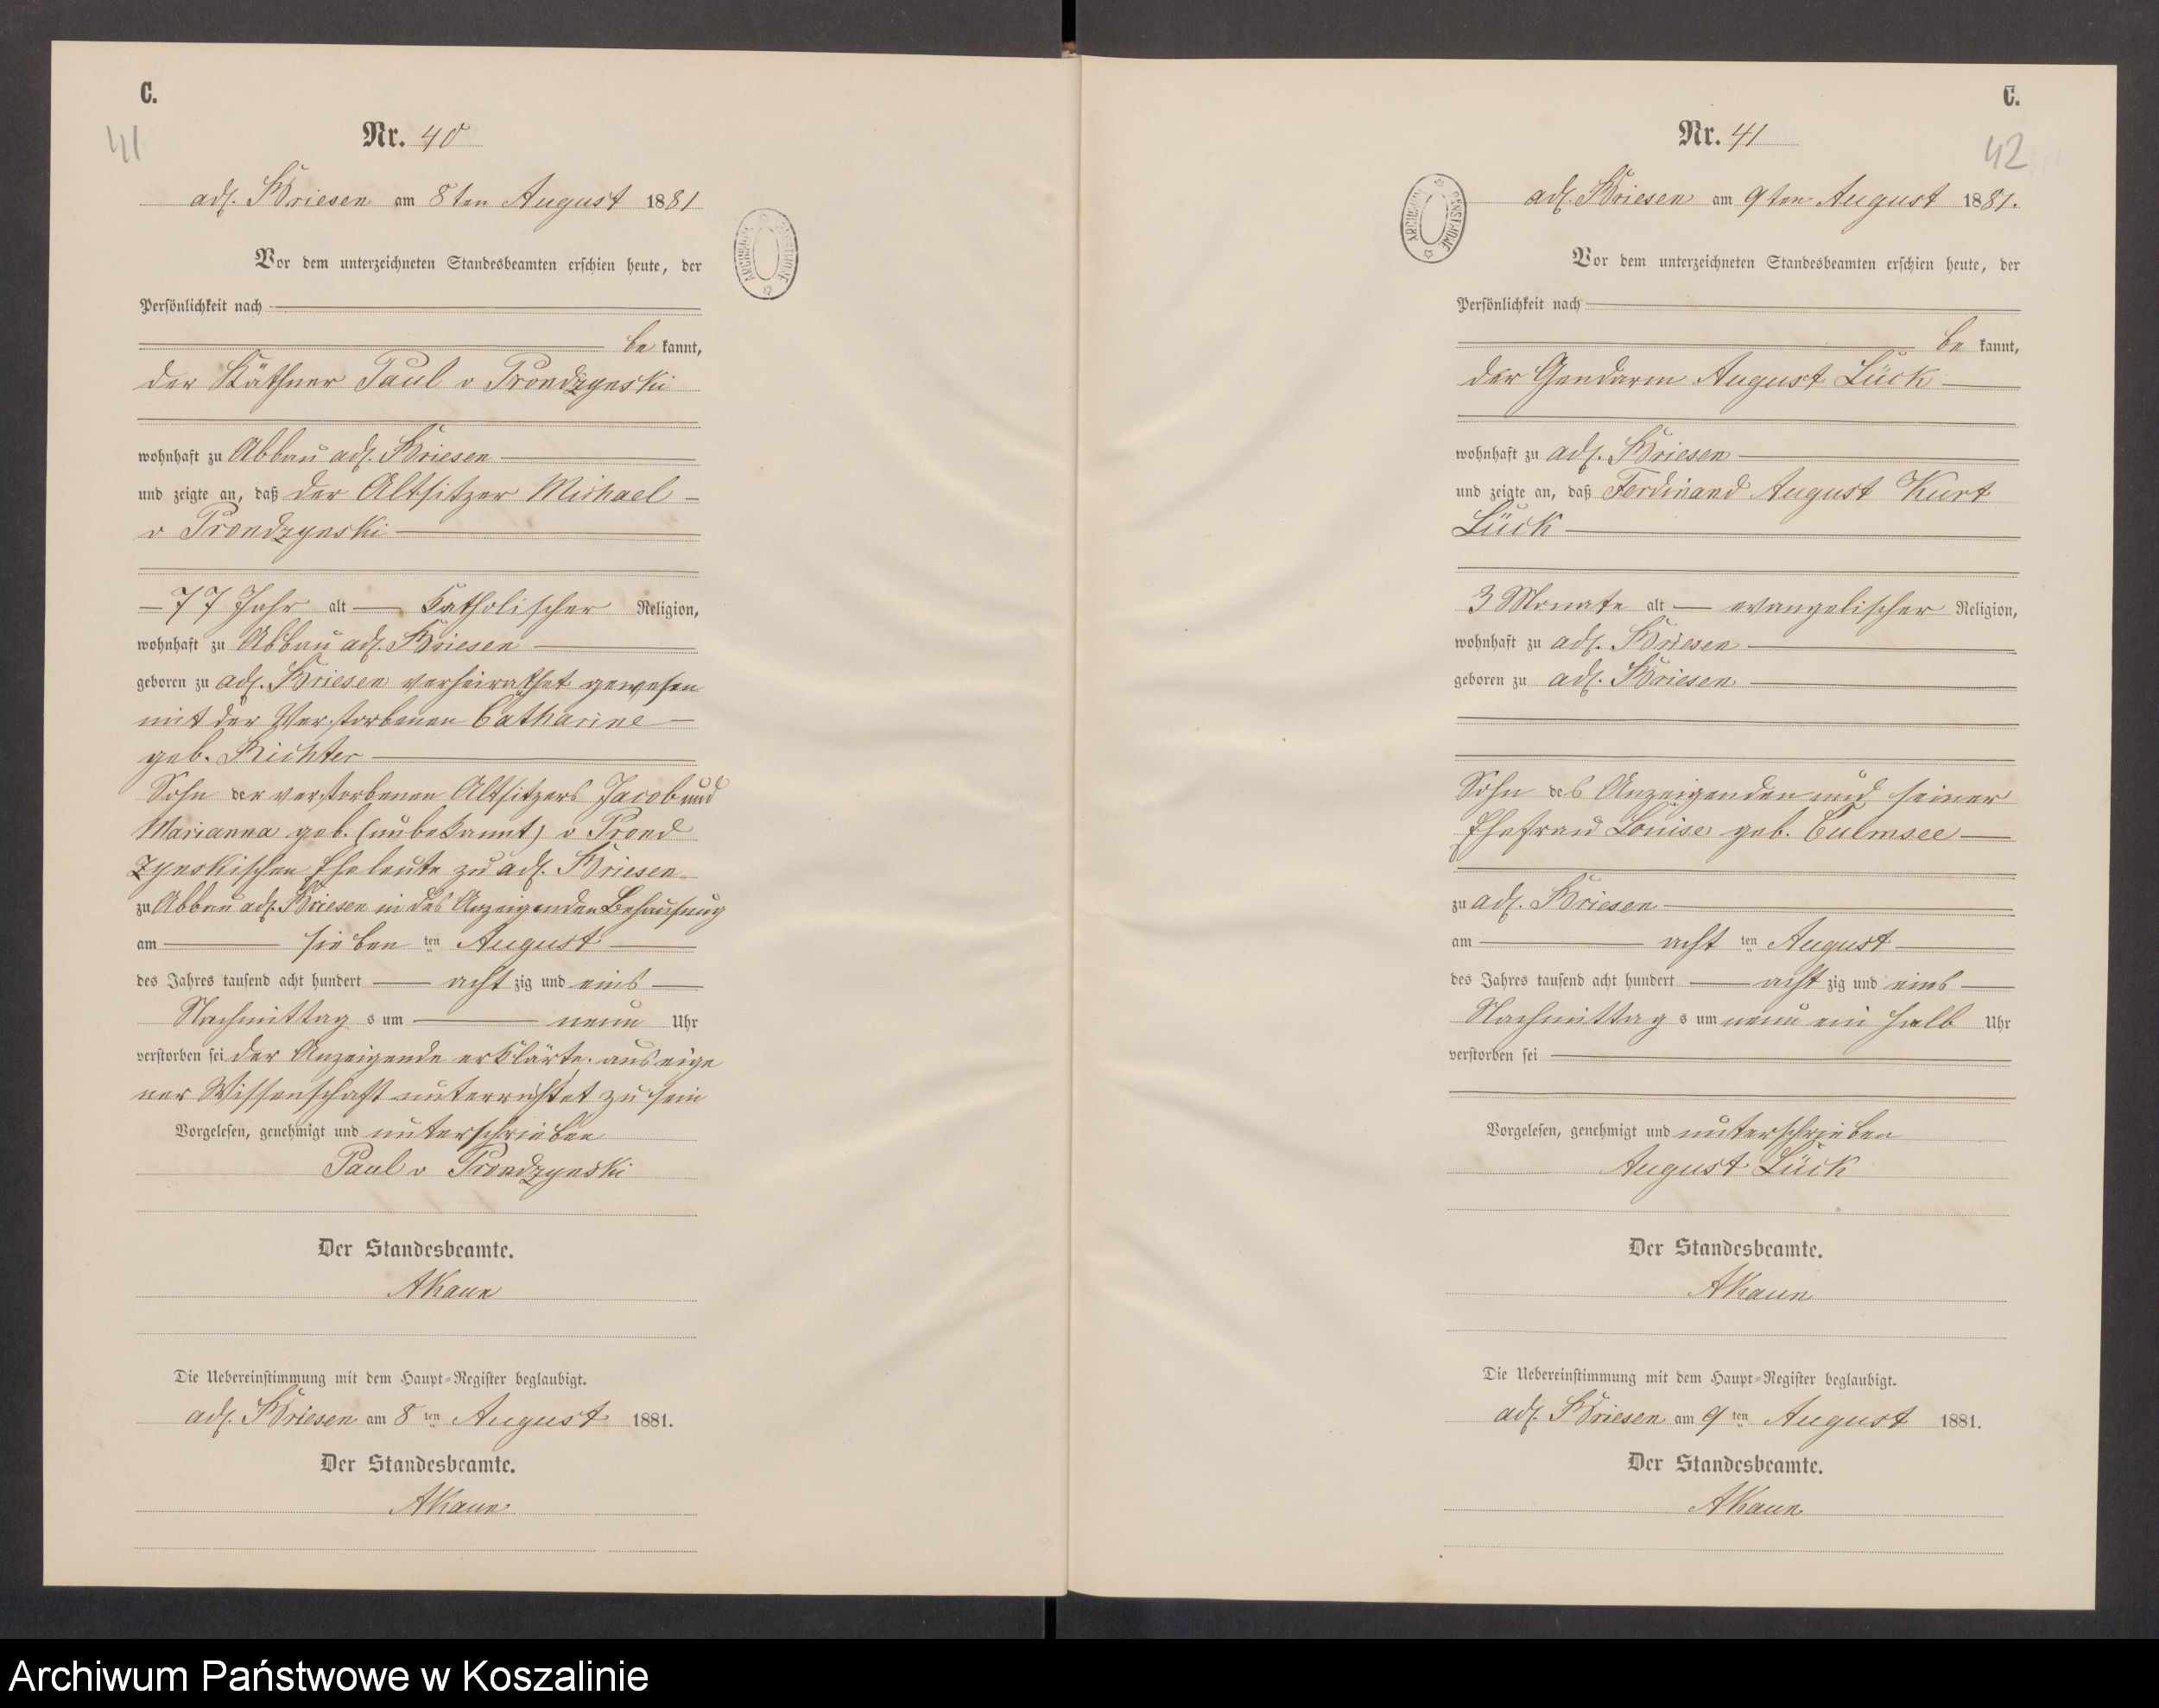 C.
41
Nr. 40
adl. Briesen am 8ten August 1881
Vor dem unterzeichneten Standesbeamten erschien heute, der
Persönlichkeit nach
be kannt,
der Käthner Paul v Prondzynski
wohnhaft zu Abbau adl. Briesen
und zeigte an, daß der Altsitzer Michael
v Prondzynski
77 Jahr alt katholischer Religion,
wohnhaft zu Abbau adl. Briesen
geboren zu adl. Briesen verheirathet gewesen
mit der Verstorbenen Catharine
geb. Richter
Sohn der verstorbenen Altsitzers Jacob und
Marianna geb. (unbekannt) v Prond
zynskischen Eheleute zu adl. Briesen
zu Abbau adl. Briesen in des Anzeigenden Behausung
am sieben ten August
des Jahres tausend acht hundert acht zig und eins
Nachmittag s um neun Uhr
verstorben sei der Anzeigende erklärte, aus eige
ner Wissenschaft unterrichtet zu sein
Vorgelesen, genehmigt und unterschrieben
Paul v Prondzynski
Der Standesbeamte.
AKaun
Die Uebereinstimmung mit dem Haupt-Register beglaubigt.
adl. Briesen am 8 ten August 1881.
Der Standesbeamte.
AKaun
ARCHIWUM PAŃSTWOWE
C.
42
Nr. 41
adl. Briesen am 9ten August 1881.
ARCHIWUM PAŃSTWOWE
Vor dem unterzeichneten Standesbeamten erschien heute, der
Persönlichkeit nach
be kannt,
der Gendarm August Lück
wohnhaft zu adl. Briesen
und zeigte an, daß Ferdinand August Kurt
Lück
3 Monate alt evangelischer Religion,
wohnhaft zu adl. Briesen
geboren zu adl. Briesen
Sohn des Anzeigenden und seiner
Ehefrau Louise geb. Culmsee
zu adl. Briesen
am acht ten August
des Jahres tausend acht hundert acht zig und eins
Nachmittag s um neun ein halb Uhr
verstorben sei
Vorgelesen, genehmigt und unterschrieben
August Lück
Der Standesbeamte.
AKaun
Die Uebereinstimmung mit dem Haupt-Register beglaubigt.
adl. Briesen am 9 ten August 1881.
Der Standesbeamte.
AKaun
Archiwum Państwowe w Koszalinie